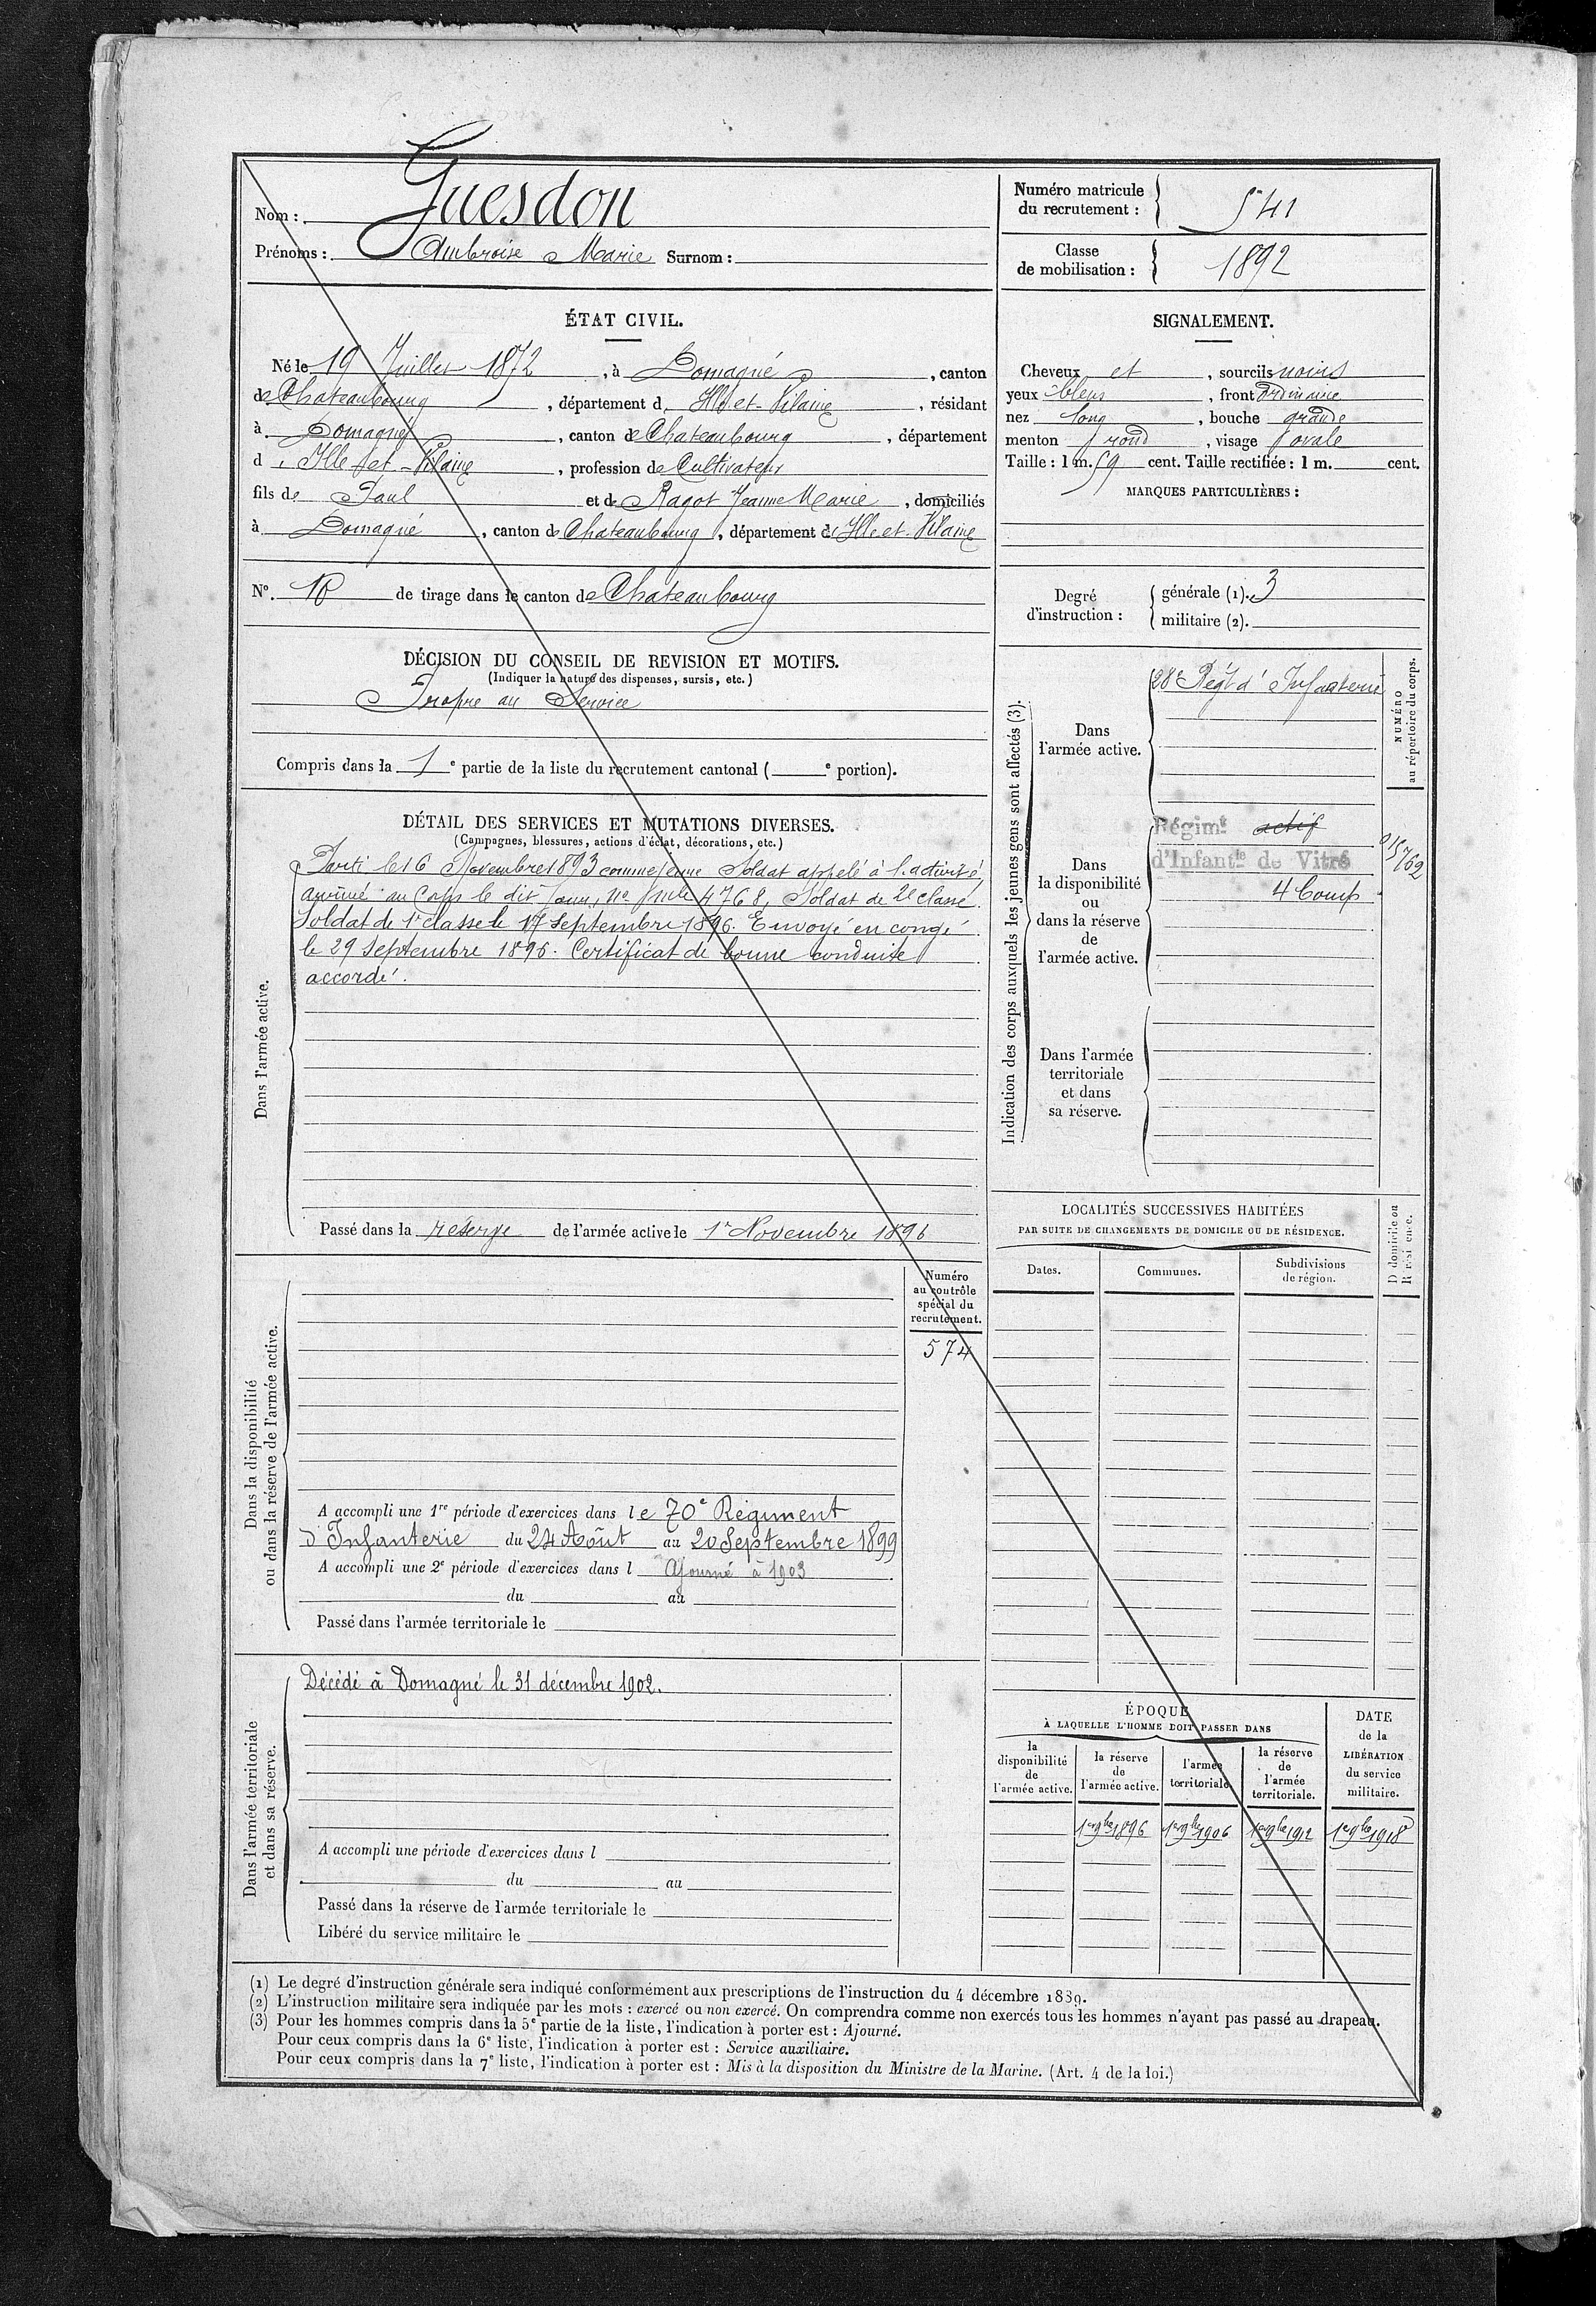 Nom : Guesdon
Prénoms : Ambroise Marie Surnom :
Numéro matricule
du recrutement : 541
Classe
de mobilisation : 1892
ÉTAT CIVIL.
Né le 19 Juillet 1872, à Domagné, canton
de Chateaubourg, département d Ille et-Vilaine, résidant
à Domagné, canton de Chateaubourg, département
d Ille et-Vilaine, profession de Cultivateur
fils de Paul et de Ragot Jeanne Marie, domiciliés
à Domagné, canton de Chateaubourg, département d Ille et-Vilaine
SIGNALEMENT.
Cheveux et, sourcils noirs
yeux bleus, front ordinaire
nez long, bouche grande
menton rond, visage ovale
Taille : 1 m. 59 cent. Taille rectifiée : 1 m. cent.
MARQUES PARTICULIÈRES :
N°. de tirage dans le canton de Chateaubourg
Degré
d'instruction :
générale (1). 3
militaire (2).
DÉCISION DU CONSEIL DE REVISION ET MOTIFS.
(Indiquer la nature des dispenses, sursis, etc.)
Propre au Service
Compris dans la 1e partie de la liste du recrutement cantonal ( e portion).
DÉTAIL DES SERVICES ET MUTATIONS DIVERSES.
(Campagnes, blessures, actions d'éclat, décorations, etc.)
Dans l'armée active.
Parti le 16 Novembre 1893 comme jeune Soldat appelé à l'activité,
arrivé au Corps le dit Jour, no mle 4768, Soldat de 2e classe.
Soldat de 1re classe le 17 Septembre 1896. Envoyé en congé
le 29 Septembre 1896. Certificat de bonne conduite
accordé.
Passé dans la réserve de l'armée active le 1er Novembre 1896
Indication des corps auxquels les jeunes gens sont affectés (3).
NUMÉRO
au répertoire du corps.
Dans
l'armée active.
28e Régt d'Infanterie
Dans
la disponibilité
ou
dans la réserve
de
l'armée active.
Régimt actif
d'Infantie de Vitré
4 Comp
015762
Dans l'armée
territoriale
et dans
sa réserve.
LOCALITÉS SUCCESSIVES HABITÉES
PAR SUITE DE CHANGEMENTS DE DOMICILE OU DE RÉSIDENCE.
Dates.
Communes.
Subdivisions
de région.
D domicile ou
R résidence.
Dans la disponibilité
ou dans la réserve de l'armée active.
Numéro
au contrôle
spécial du
recrutement.
574
A accompli une 1re période d'exercices dans le 70e Régiment
d'Infanterie du 24 Août au 20 Septembre 1899
A accompli une 2e période d'exercices dans l Ajourné à 1903
du au
Passé dans l'armée territoriale le
Dans l'armée territoriale
et dans sa réserve.
Décédé à Domagné le 31 décembre 1902.
A accompli une période d'exercices dans l
du au
Passé dans la réserve de l'armée territoriale le
Libéré du service militaire le
ÉPOQUE
À LAQUELLE L'HOMME DOIT PASSER DANS
la
disponibilité
de
l'armée active.
la réserve
de
l'armée active.
l'armée
territoriale
la réserve
de
l'armée
territoriale.
DATE
de la
LIBÉRATION
du service
militaire.
1er 9bre 1896 1er 9bre 1906 1er 9bre 1912 1er 9bre 1918
(1) Le degré d'instruction générale sera indiqué conformément aux prescriptions de l'instruction du 4 décembre 1889.
(2) L'instruction militaire sera indiquée par les mots : exercé ou non exercé. On comprendra comme non exercés tous les hommes n'ayant pas passé au drapeau.
(3) Pour les hommes compris dans la 5e partie de la liste, l'indication à porter est : Ajourné.
Pour ceux compris dans la 6e liste, l'indication à porter est : Service auxiliaire.
Pour ceux compris dans la 7e liste, l'indication à porter est : Mis à la disposition du Ministre de la Marine. (Art. 4 de la loi.)